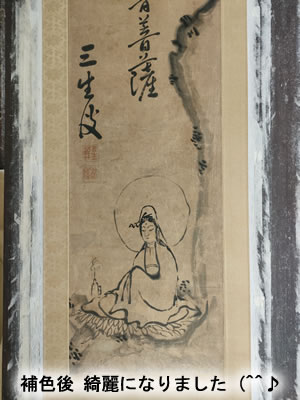 音菩薩
三生
補色後 綺麗になりました (^^♪